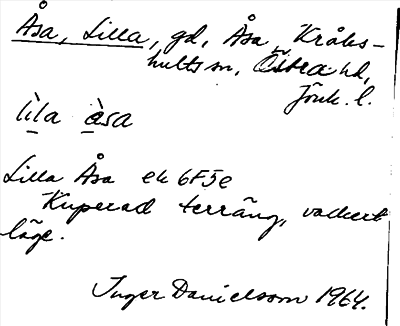 Åsa, Lilla, gd, Åsa, Kråks-
hults sn, Östra hd,
Jönk. l.
lìla åsa
Lilla Åsa ek 6F5e
Kuperad terräng, vackert
läge.
Inger Danielsson 1964.